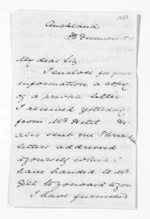 Auckland
My dear Sir,
I enclose for your
information a copy
of a private letter
I received yesterday
from Mr
also sent me three
letters addressed
to yourself which I
have handed to Mr
Gill to forward to you
I have forwarded